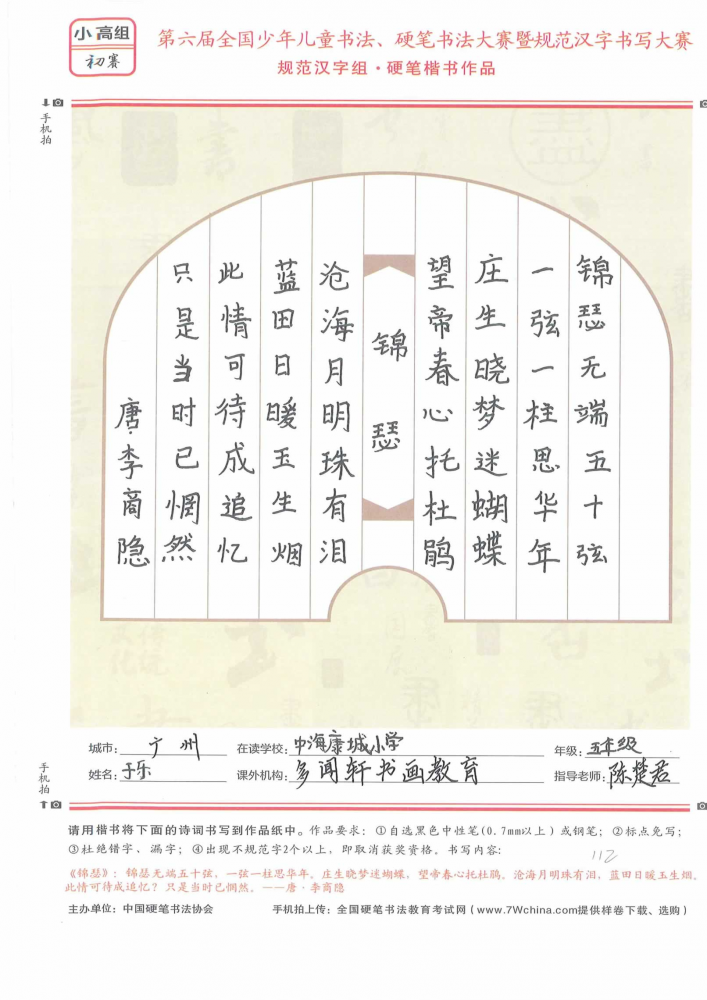 小高组
初赛
第六届全国少年儿童书法、硬笔书法大赛暨规范汉字书写大赛
规范汉字组·硬笔楷书作品
手机拍
锦瑟无端五十弦
一弦一柱思华年
庄生晓梦迷蝴蝶
望帝春心托杜鹃
锦瑟
沧海月明珠有泪
蓝田日暖玉生烟
此情可待成追忆
只是当时已惘然
唐·李商隐
城市：广州 在读学校：中海康城小学 年级：五年级
姓名：于乐 课外机构：多闻轩书画教育 指导老师：陈楚君
手机拍
请用楷书将下面的诗词书写到作品纸中。作品要求：①自选黑色中性笔(0.7mm以上)或钢笔；②标点免写；
③杜绝错字、漏字；④出现不规范字2个以上，即取消获奖资格。书写内容：
112
《锦瑟》：锦瑟无端五十弦，一弦一柱思华年。庄生晓梦迷蝴蝶，望帝春心托杜鹃。沧海月明珠有泪，蓝田日暖玉生烟。
此情可待成追忆？只是当时已惘然。——唐·李商隐
主办单位：中国硬笔书法协会 手机拍上传：全国硬笔书法教育考试网（www.7Wchina.com提供样卷下载、选购）